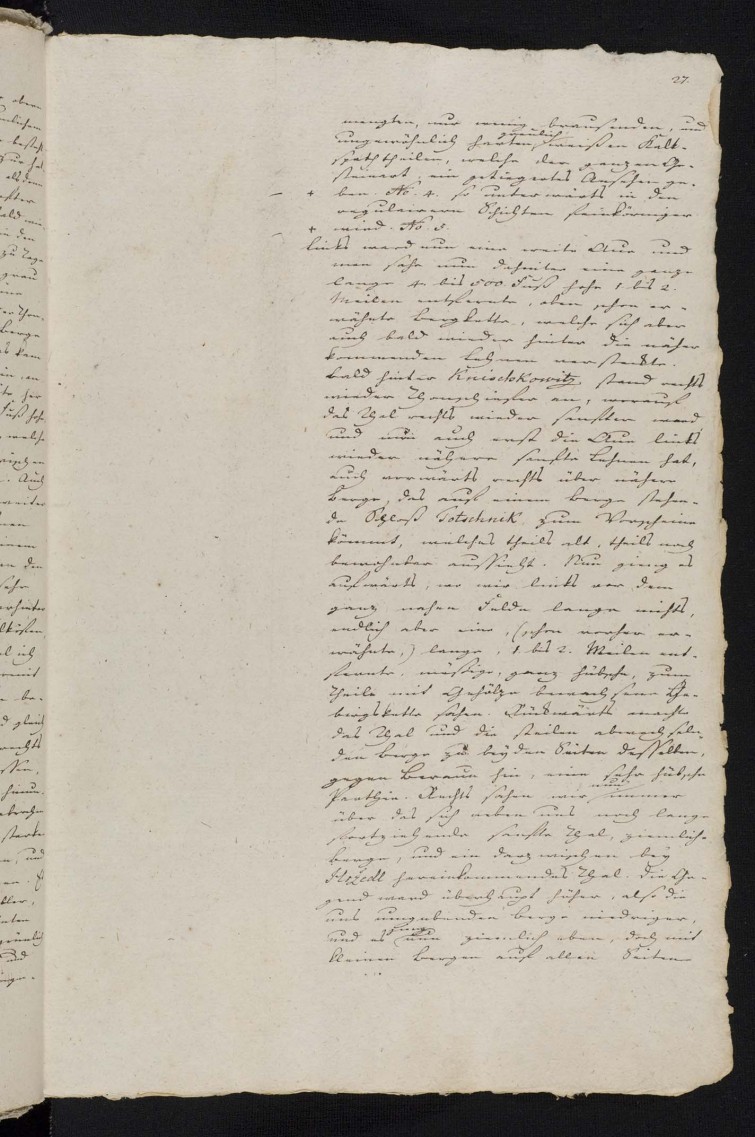 27.
mengten, nur wenig brausenden, und
grünlich
ungewöhnlich harten, weißen Kalk-
spaththeilen, welche der ganzen Ge-
steinart, ein getiegertes Ansehen ge-
+ ben. No. 4. so unterwärts in den
regulairern Schichten feinkörniger
+ wird. No. 5.
links ward nun eine weite Aue und
man sahe nun dahinter eine ganze
lange 4 bis 500. Fuß hohe 1. bis 2.
Meilen entfernte, oben schon er-
wähnte Bergkette, welche sich aber
auch bald wieder hinter die näher
kommenden Lehnen versteckte.
Bald hinter Knischkowitz, stand rechts
wieder Thonschiefer an, worauf
das Thal rechts wieder sanfter ward,
und nun auch erst die Aue links
wieder nähere sanfte Lehnen hat,
auch vorwärts rechts über nähere
Berge, das auf einem Berge stehen-
de Schloß Totschnik zum Vorschein
kömmt, welches theils alt, theils noch
bewohnbar aussieht. Nun gieng es
aufwärts, wo wir links vor dem
ganz nahen Felde lange nichts,
endlich aber eine, (schon vorher er-
wähnte,) lange, 1 bis 2. Meilen ent-
fernte, mäßige, ganz hübsche, zum
Theile mit Gehölze bewachsene Ge-
birgskette sahen. Rückwärts machte
das Thal und die steilen abwechseln-
den Berge zu beyden Seiten desselben,
gegen Beraun hin, eine sehr hübsche
nun
Parthie. Rechts sahen wir immer
über das sich neben uns noch lange
fortziehende sanfte Thal, ziemliche
Berge, und ein dazwischen bey
hereinkommendes Thal. Die Ge-
gend ward überhaupt höher, also die
uns umgebenden Berge niedriger,
gieng
und es nun ziemlich eben, doch mit
kleinen Bergen auf allen Seiten